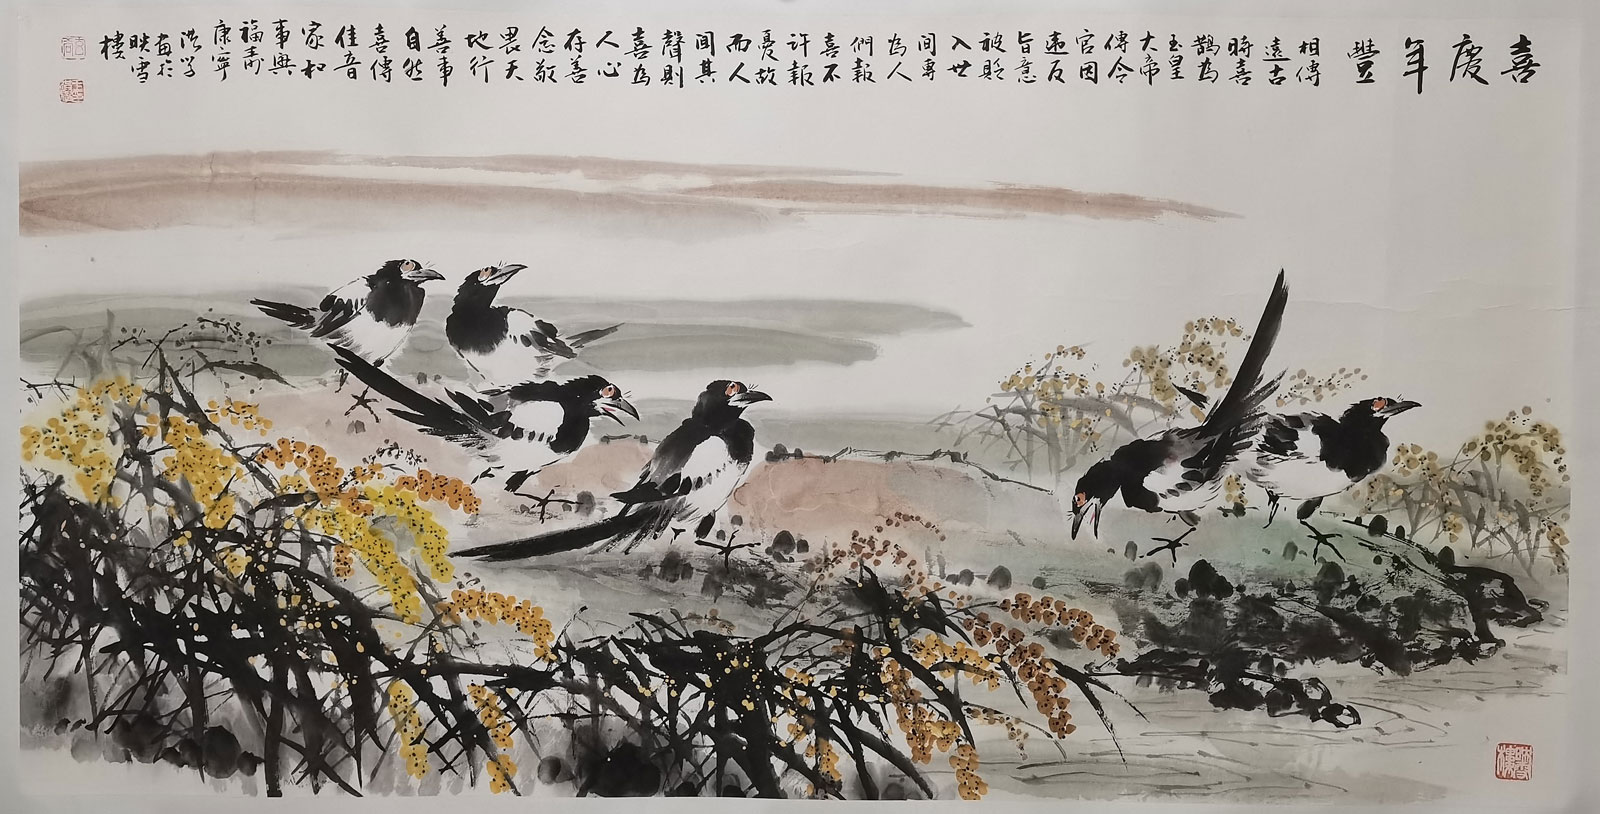 喜慶
年
豐
相傳
遠古
時喜
鵲為
玉皇
大帝
傳令
官因
違反
旨意
被貶
入世
間專
為人
們報
喜不
許報
憂故
而人
聞其
聲則
喜為
人心
存善
念敬
畏天
地行
善事
自然
喜傳
佳音
家和
事興
福壽
康寧
畫於
映雪
樓